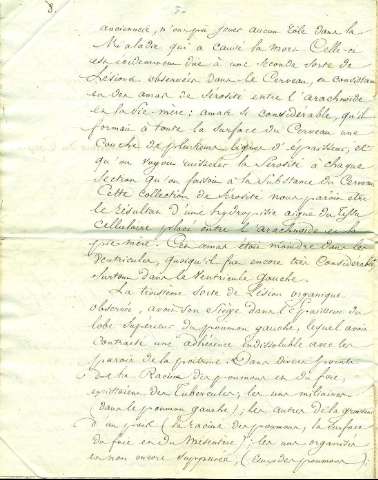 8.
ancienneté, n'ont pu jouer aucun rôle dans la
Maladie qui a causé la mort. Celle-ci
est évidemment due à une seconde sorte de
Lésions observées dans le Cerveau, et consistant
en des amas de Sérosité entre l'arachnoïde
et la Pie-mère : amas si considérable, qu'il
formait à toute la surface du Cerveau une
Couche de plusieurs lignes d'épaisseur, et
qu'on voyait ruisseler la Sérosité à chaque
Section qu'on faisoit à la Substance du Cerveau.
Cette collection de Sérosité nous paroit être
le Résultat d'une hydropisie aigue du tissu
Cellulaire placé entre l'arachnoïde et la
pie-mère. Cet amas étoit moindre dans les
Ventricules, quoiqu'il fut encore très considérable
surtout dans le Ventricule gauche.
La troisième Sorte de Lésion organique
observée, avoit son Siège dans l'Epaisseur du
lobe Supérieur du poumon gauche, lequel avoit
Contracté une adhérence indissoluble avec les
parois de la poitrine. Dans divers points
de la Racine des poumons et du foie,
existoient des Tubercules, les uns miliaires
(dans le poumon gauche), les autres de la grosseur
d'un pois (la racine des poumons, la surface
du foie et du Mésentère) ; les uns organisés
et non encore suppurés, (Ceux des poumons),